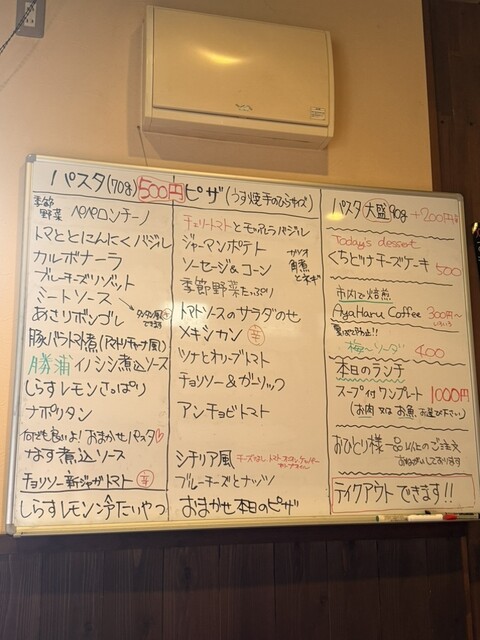 パスタ(70g) 500円
季節野菜 ペペロンチーノ
トマトとにんにくバジル
カルボナーラ
ブルーチーズリゾット
ミートソース
あさりボンゴレ
豚バラトマト煮(アマトリチャーナ風)
勝浦イノシシ煮込ソース
しらすレモンさっぱり
ナポリタン
何でも良いよ!おまかせパスタ♡
なす煮込ソース
チョリソー新ジャガトマト 辛
しらすレモン冷たいやつ
ピザ(うす焼手のひらサイズ)
チェリートマトとモッツァレラバジル
ジャーマンポテト
ソーセージ&コーン
季節野菜たっぷり
カツオ角煮とネギ
トマトソースのサラダのせ
メキシカン 辛
ツナとオリーブトマト
チョリソー&ガーリック
アンチョビトマト
シチリア風
ブルーチーズとナッツ
おまかせ本日のピザ
パスタ 大盛 90g +200円
Today's dessert
くちどけチーズケーキ 500
市内で焙煎
AyaHaru Coffee 300円~
梅~ソーダ 400
本日のランチ
スープ付ワンプレート 1000円
(お肉又はお魚、お選び下さい)
おひとり様一品以上のご注文
おねがいしております
テイクアウトできます!!